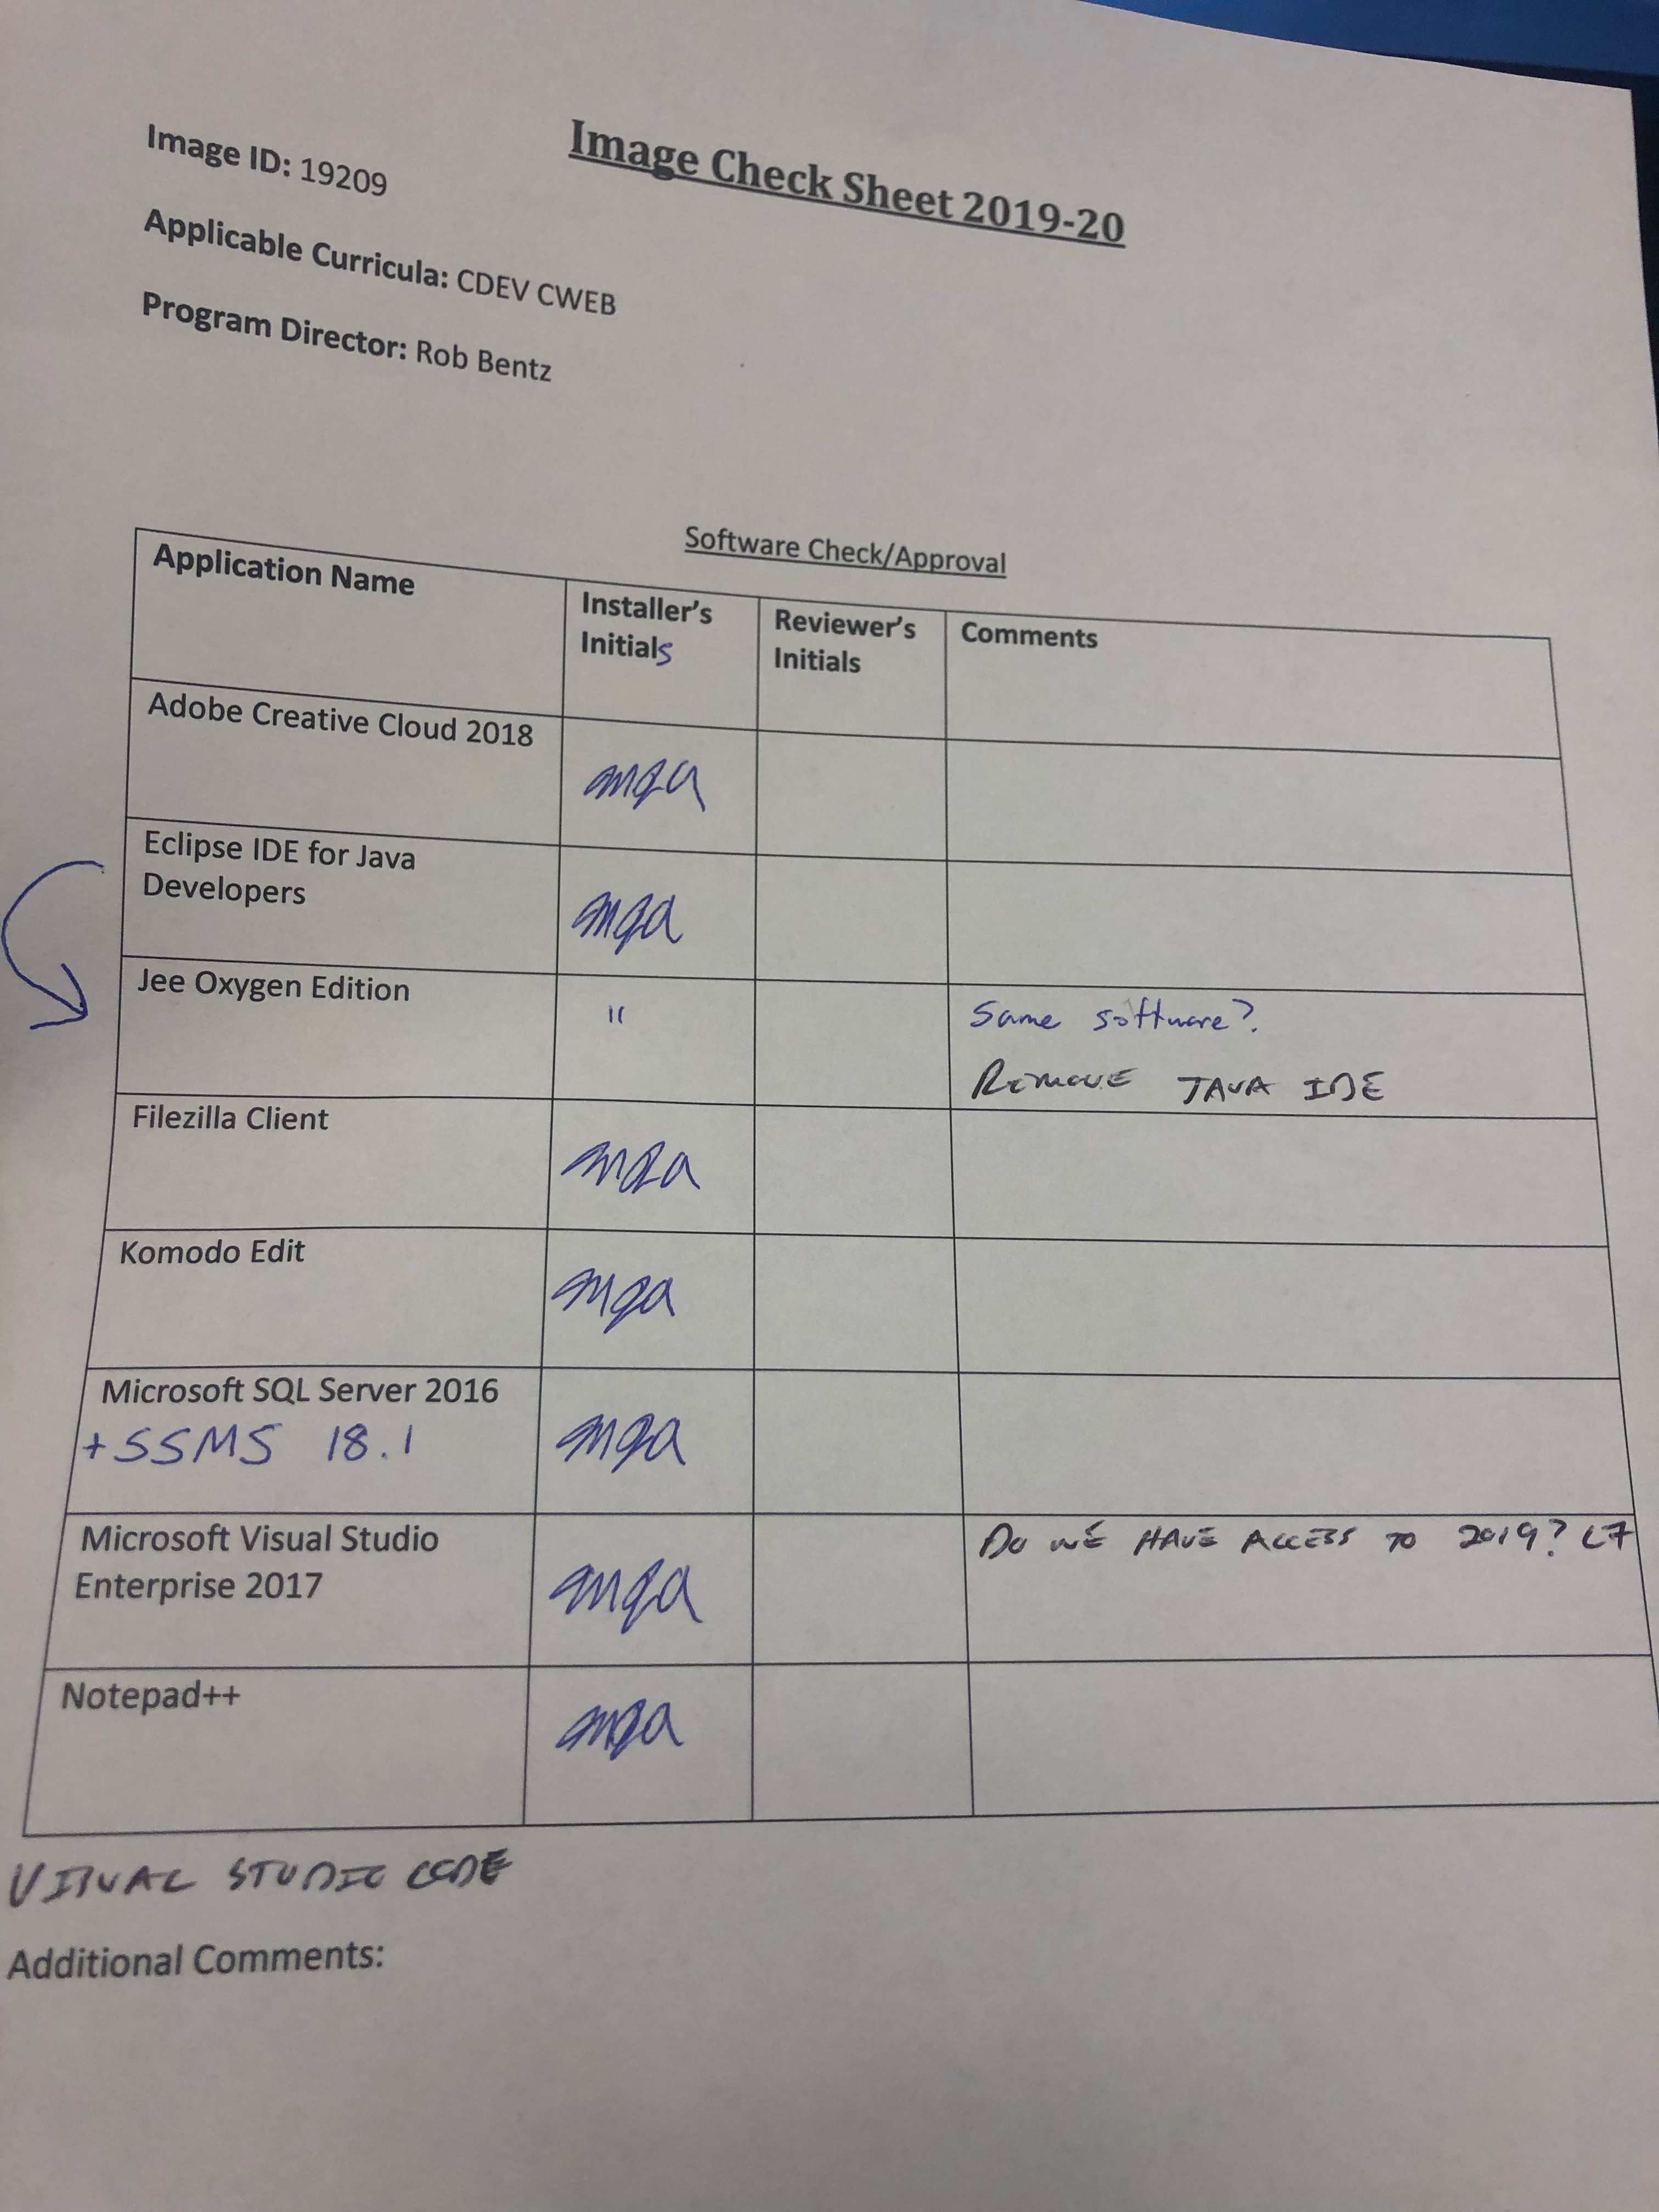 Image Check Sheet 2019-20
Image ID: 19209
Applicable Curricula: CDEV CWEB
Program Director: Rob Bentz
Software Check/Approval
Application Name
Installer's
Initials
Reviewer's
Initials
Comments
Adobe Creative Cloud 2018
mga
Eclipse IDE for Java
Developers
mga
Jee Oxygen Edition
"
Same software?
REMOVE JAVA IDE
Filezilla Client
mga
Komodo Edit
mga
Microsoft SQL Server 2016
+SSMS 18.1
mga
Microsoft Visual Studio
Enterprise 2017
mga
DO WE HAVE ACCESS TO 2019?
Notepad++
mga
VISUAL STUDIO CODE
Additional Comments: